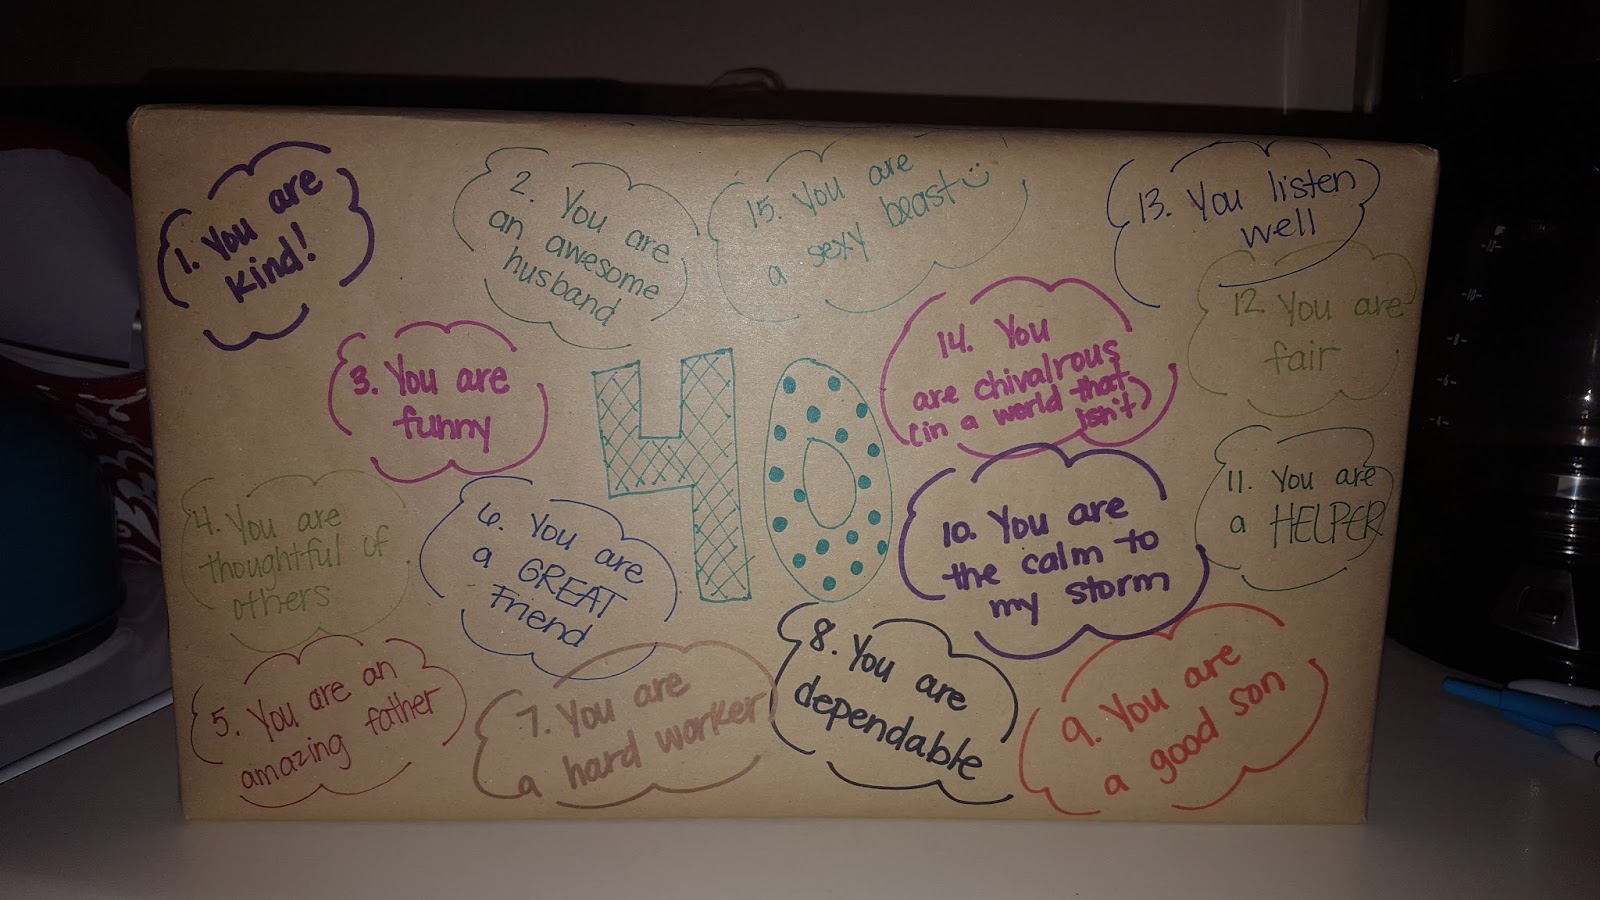 1. You are
kind!
2. You are
an awesome
husband
15. You are
a sexy beast
13. You listen
well
3. You are
funny
40
14. You
are chivalrous
(in a world that
isn't)
12. You are
fair
4. You are
thoughtful of
others
6. You are
a GREAT
Friend
10. You are
the calm to
my storm
11. You are
a HELPER
5. You are an
amazing father
7. You are
a hard worker
8. You are
dependable
9. You are
a good son